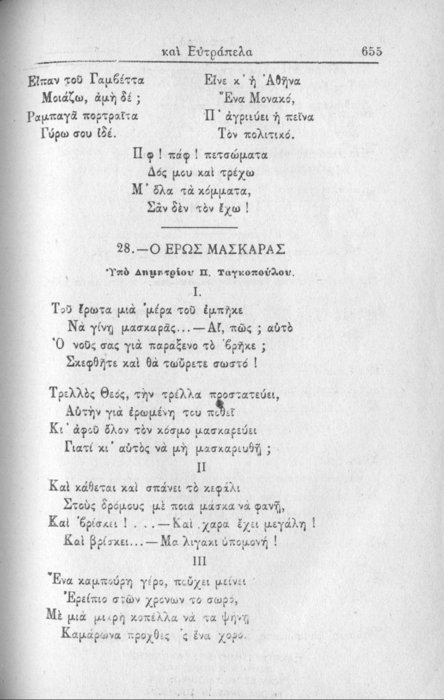 καὶ Εὐτράπελα 655
Εἶπαν τοῦ Γαμβέττα
Μοιάζω, ἀμὴ δέ ;
Ραμπαγᾶ πορτραῖτα
Γύρω σου ἰδέ.
Εἶνε κ' ἡ Ἀθῆνα
Ἕνα Μονακό,
Π' ἀγριεύει ἡ πεῖνα
Τὸν πολιτικό.
Πφ ! πάφ ! πετσώματα
Δός μου καὶ τρέχω
Μ' ὅλα τὰ κόμματα,
Σὰν δὲν τὸν ἔχω !
28.—Ο ΕΡΩΣ ΜΑΣΚΑΡΑΣ
Ὑπὸ Δημητρίου Π. Ταγκοπούλου.
I.
Τοῦ ἔρωτα μιὰ 'μέρα τοῦ ἐμπῆκε
Νὰ γίνῃ μασκαρᾶς...—Αἴ, πῶς ; αὐτὸ
Ὁ νοῦς σας γιὰ παράξενο τὸ 'βρῆκε ;
Σκεφθῆτε καὶ θὰ τὠὕρετε σωστό !
Τρελλὸς Θεός, τὴν τρέλλα προστατεύει,
Αὐτὴν γιὰ ἐρωμένη του ποθεῖ
Κι' ἀφοῦ ὅλον τὸν κόσμο μασκαρεύει
Γιατί κι' αὐτὸς νὰ μὴ μασκαρευθῇ ;
II
Καὶ κάθεται καὶ σπάνει τὸ κεφάλι
Στοὺς δρόμους μὲ ποιὰ μάσκα νὰ φανῇ,
Καὶ 'βρίσκει ! . . .—Καὶ χαρα ἔχει μεγάλη !
Καὶ βρίσκει...—Μα λιγακι ὑπομονή !
III
Ἕνα καμπούρη γέρο, ποὖχει μείνει
Ἐρείπιο στῶν χρονων το σωρο,
Μὲ μιὰ μικρὴ κοπέλλα νὰ τα ψήνῃ
Καμάρωνα προχθες 'ς ἕνα χορο.